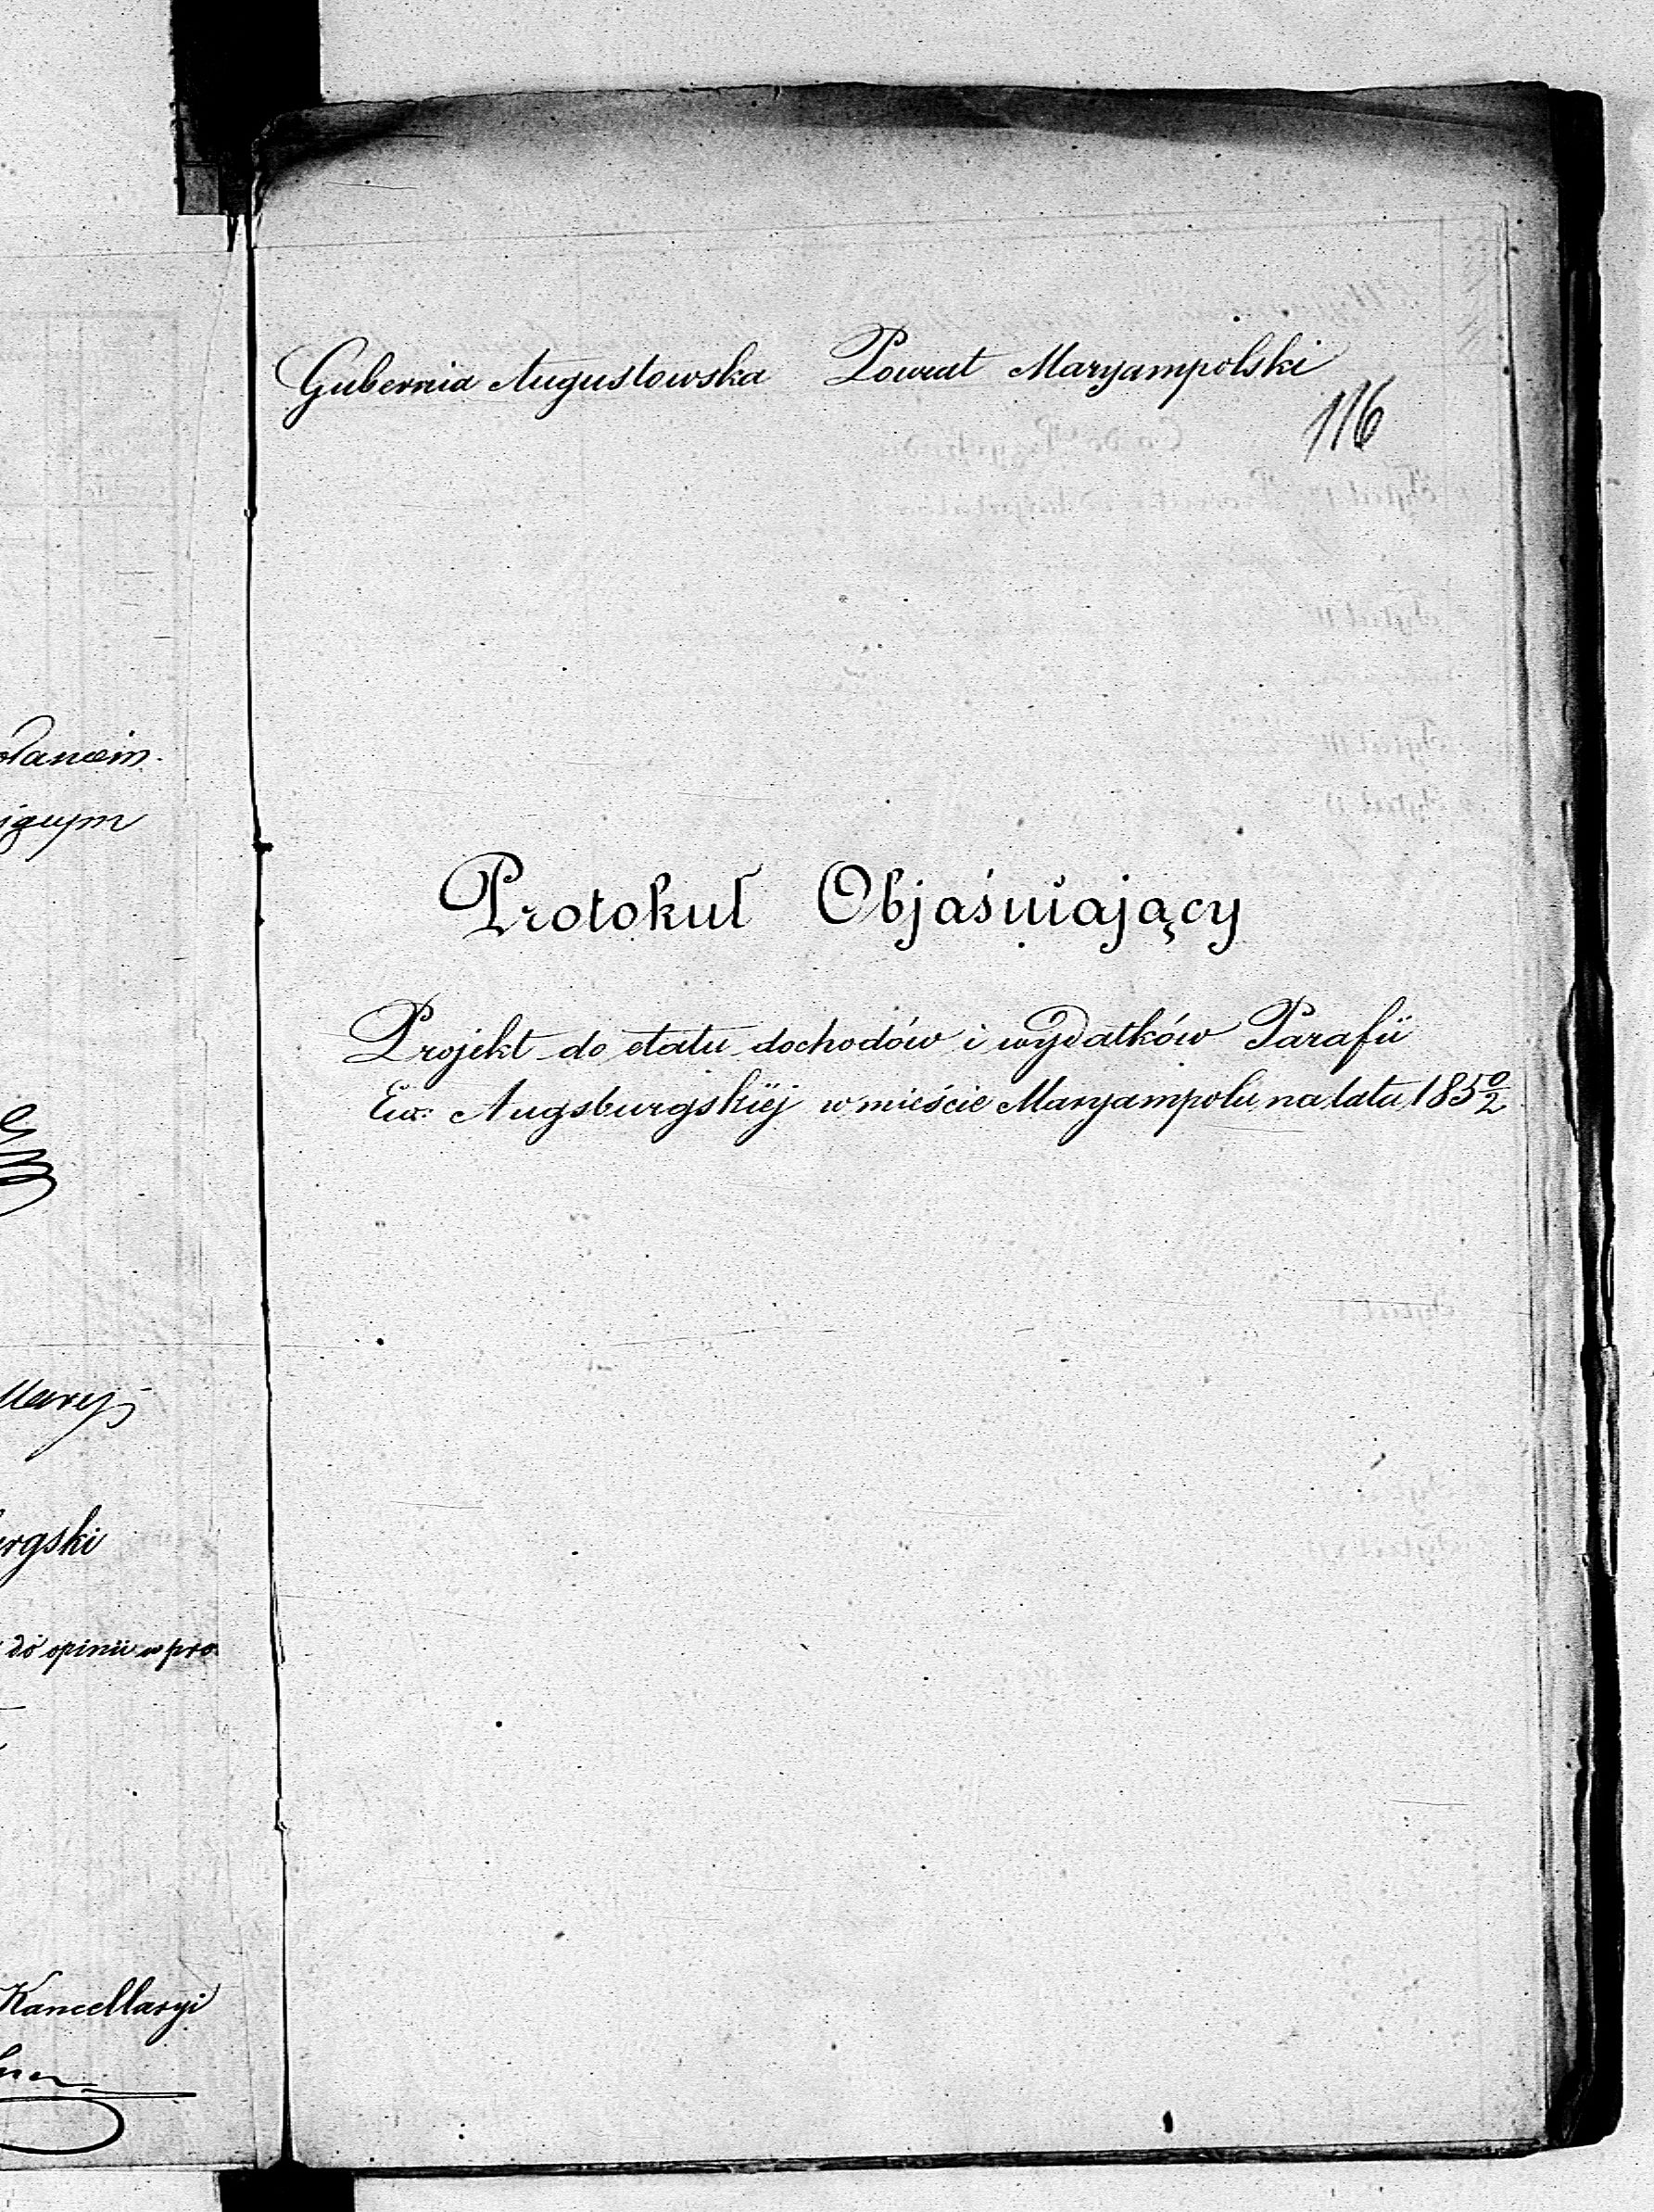 Gubernia Augustowska Powiat Maryampolski
116
Protokuł Objaśniający
Projekt do etatu dochodów i wydatków Parafii
Ew: Augsburgskiéj w mieście Maryampolu na lata 185 0/2
rgski
do opinii w pro
Kancellaryi